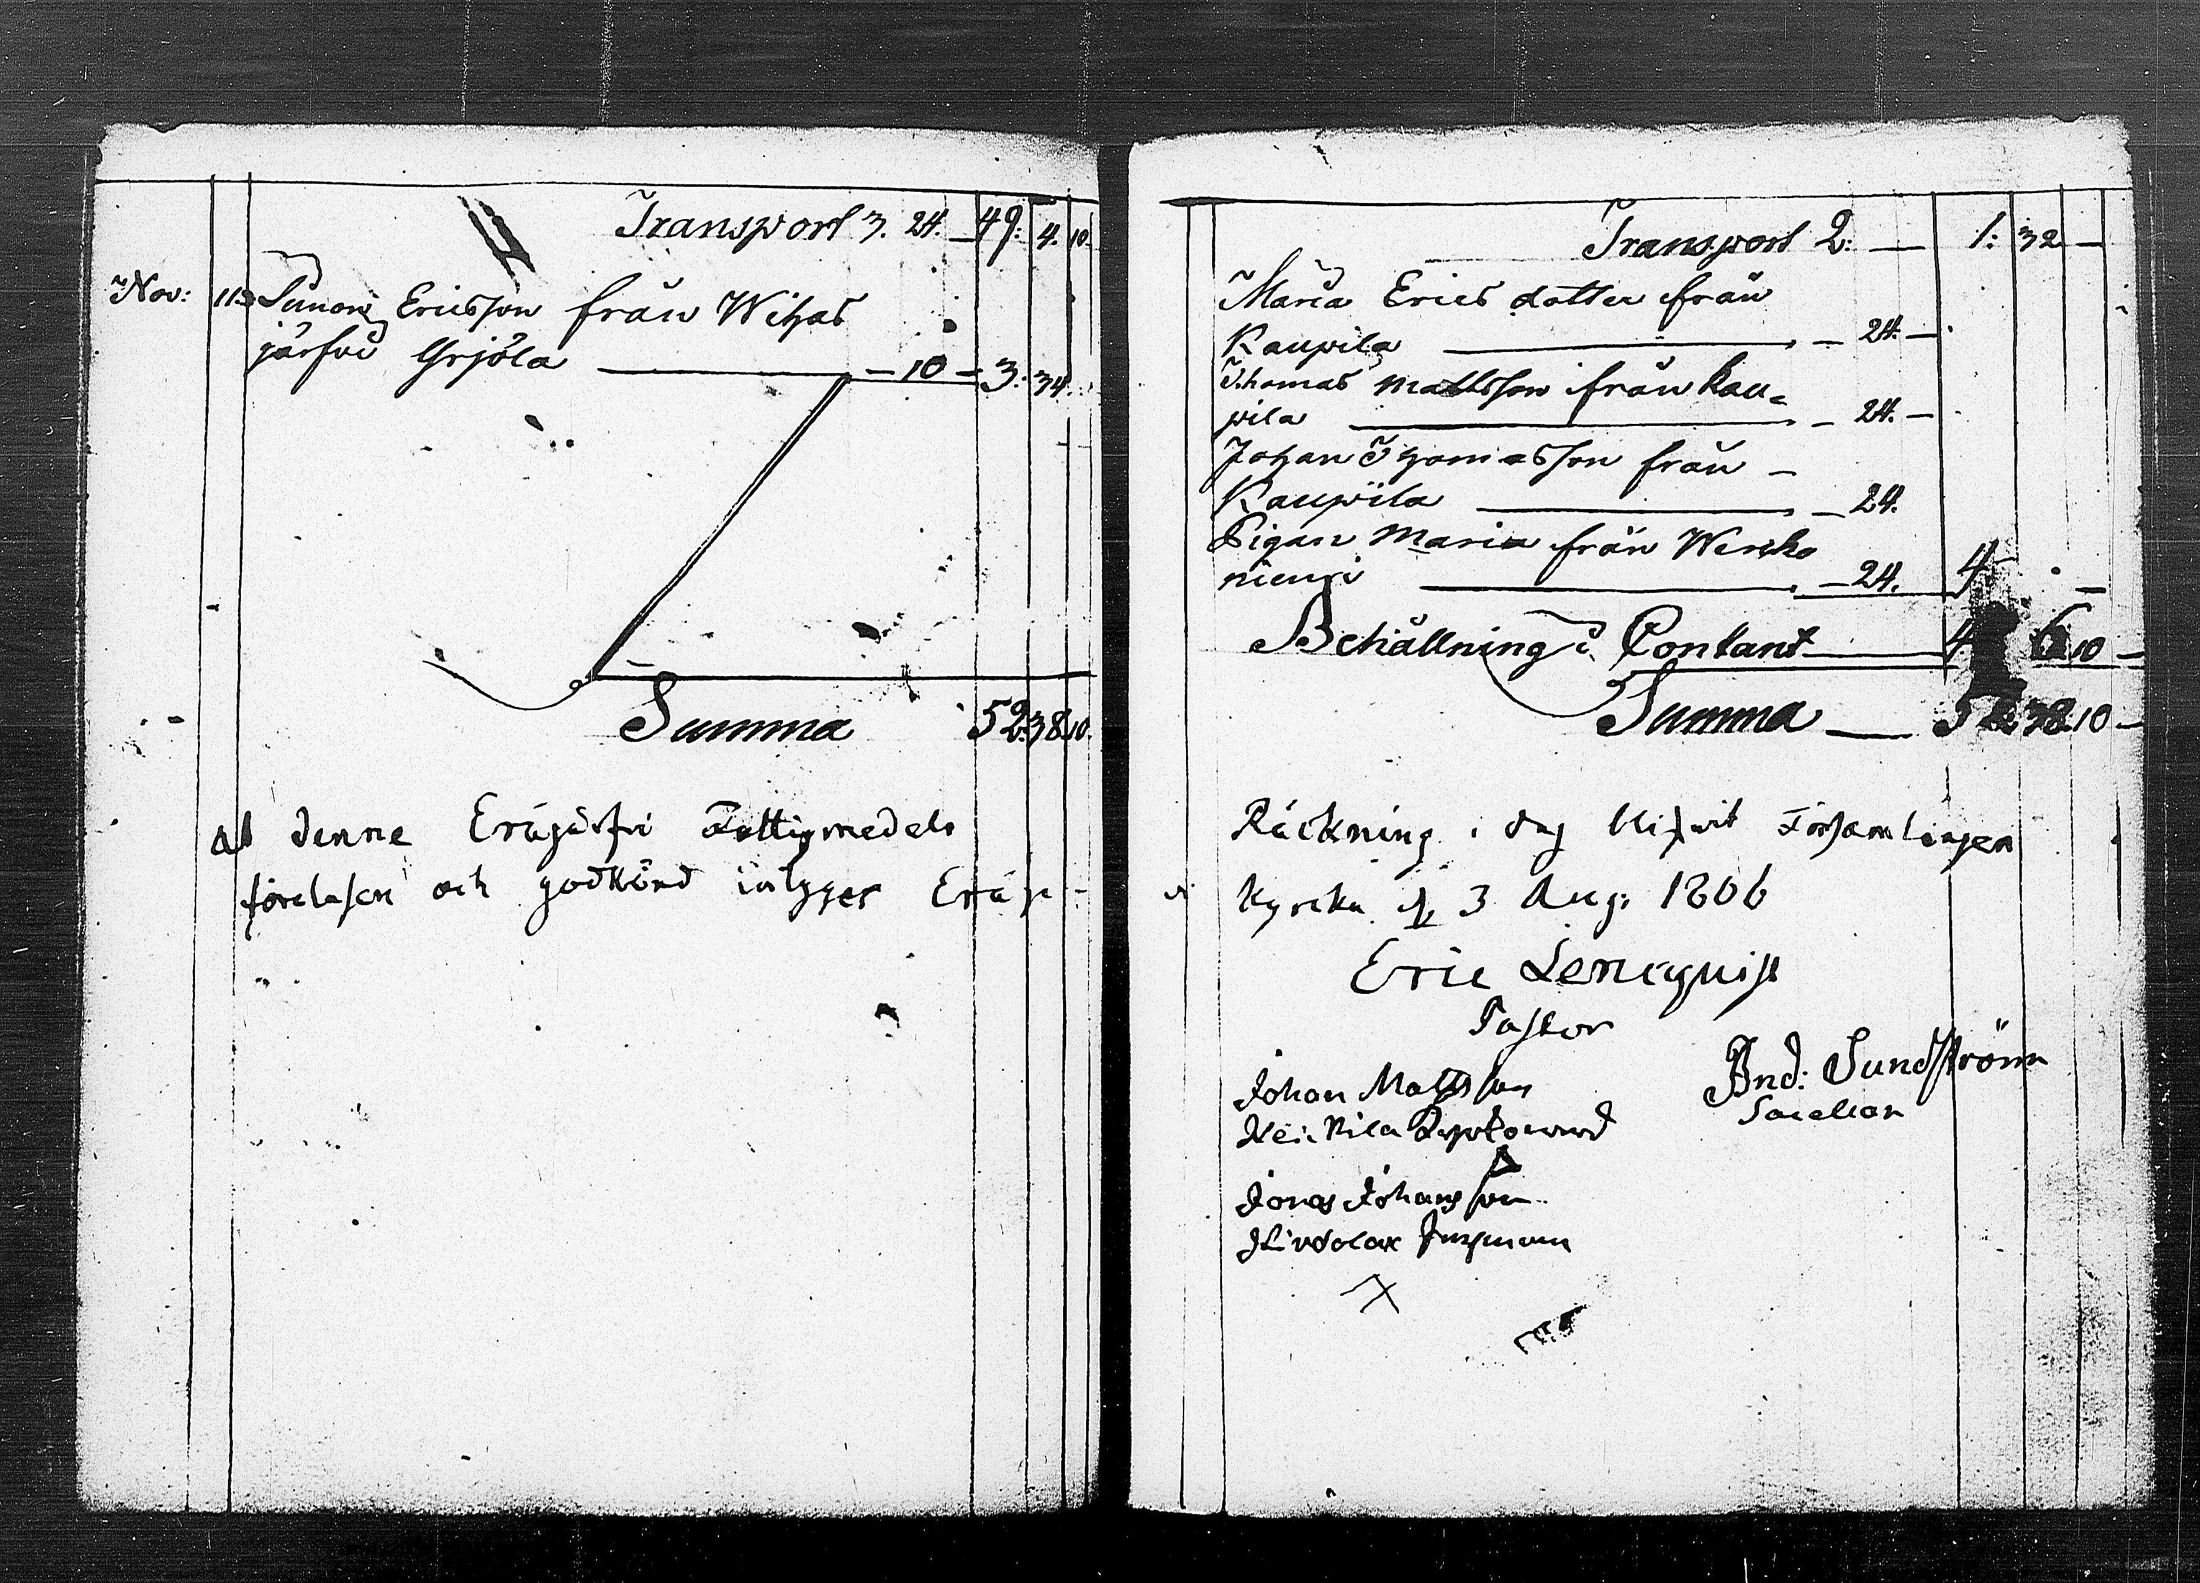 Transport 3. 24. — 49: 4. 10.
Nov: 11. Simon Ericsson från Wihas
järfvi Yrjölä — 10 — 3: 34.
Summa 52: 38. 10.
at denne Eräjärfvi Fattigmedels
föreläsen och godkänd intyges Eräjr-
Transport 2: — 1: 32 —
Maria Erics dotter från
Kaupila — 24. —
Thomas Mattsson från Kau=
pila — 24. —
Johan Thomasson från —
Kaupila — 24.
Pigan Maria från Wersko
niemi — 24. 4
Behållning i Contant 4 6 10 —
Summa — 52. 38. 10 —
Räckning i dag blifvit Församlingen
vi kyrcka d. 3 Aug: 1806
Eric Lencqvist
Pastor
Johan Mattsson And: Sundström
Sacellan
Jonas Johansson